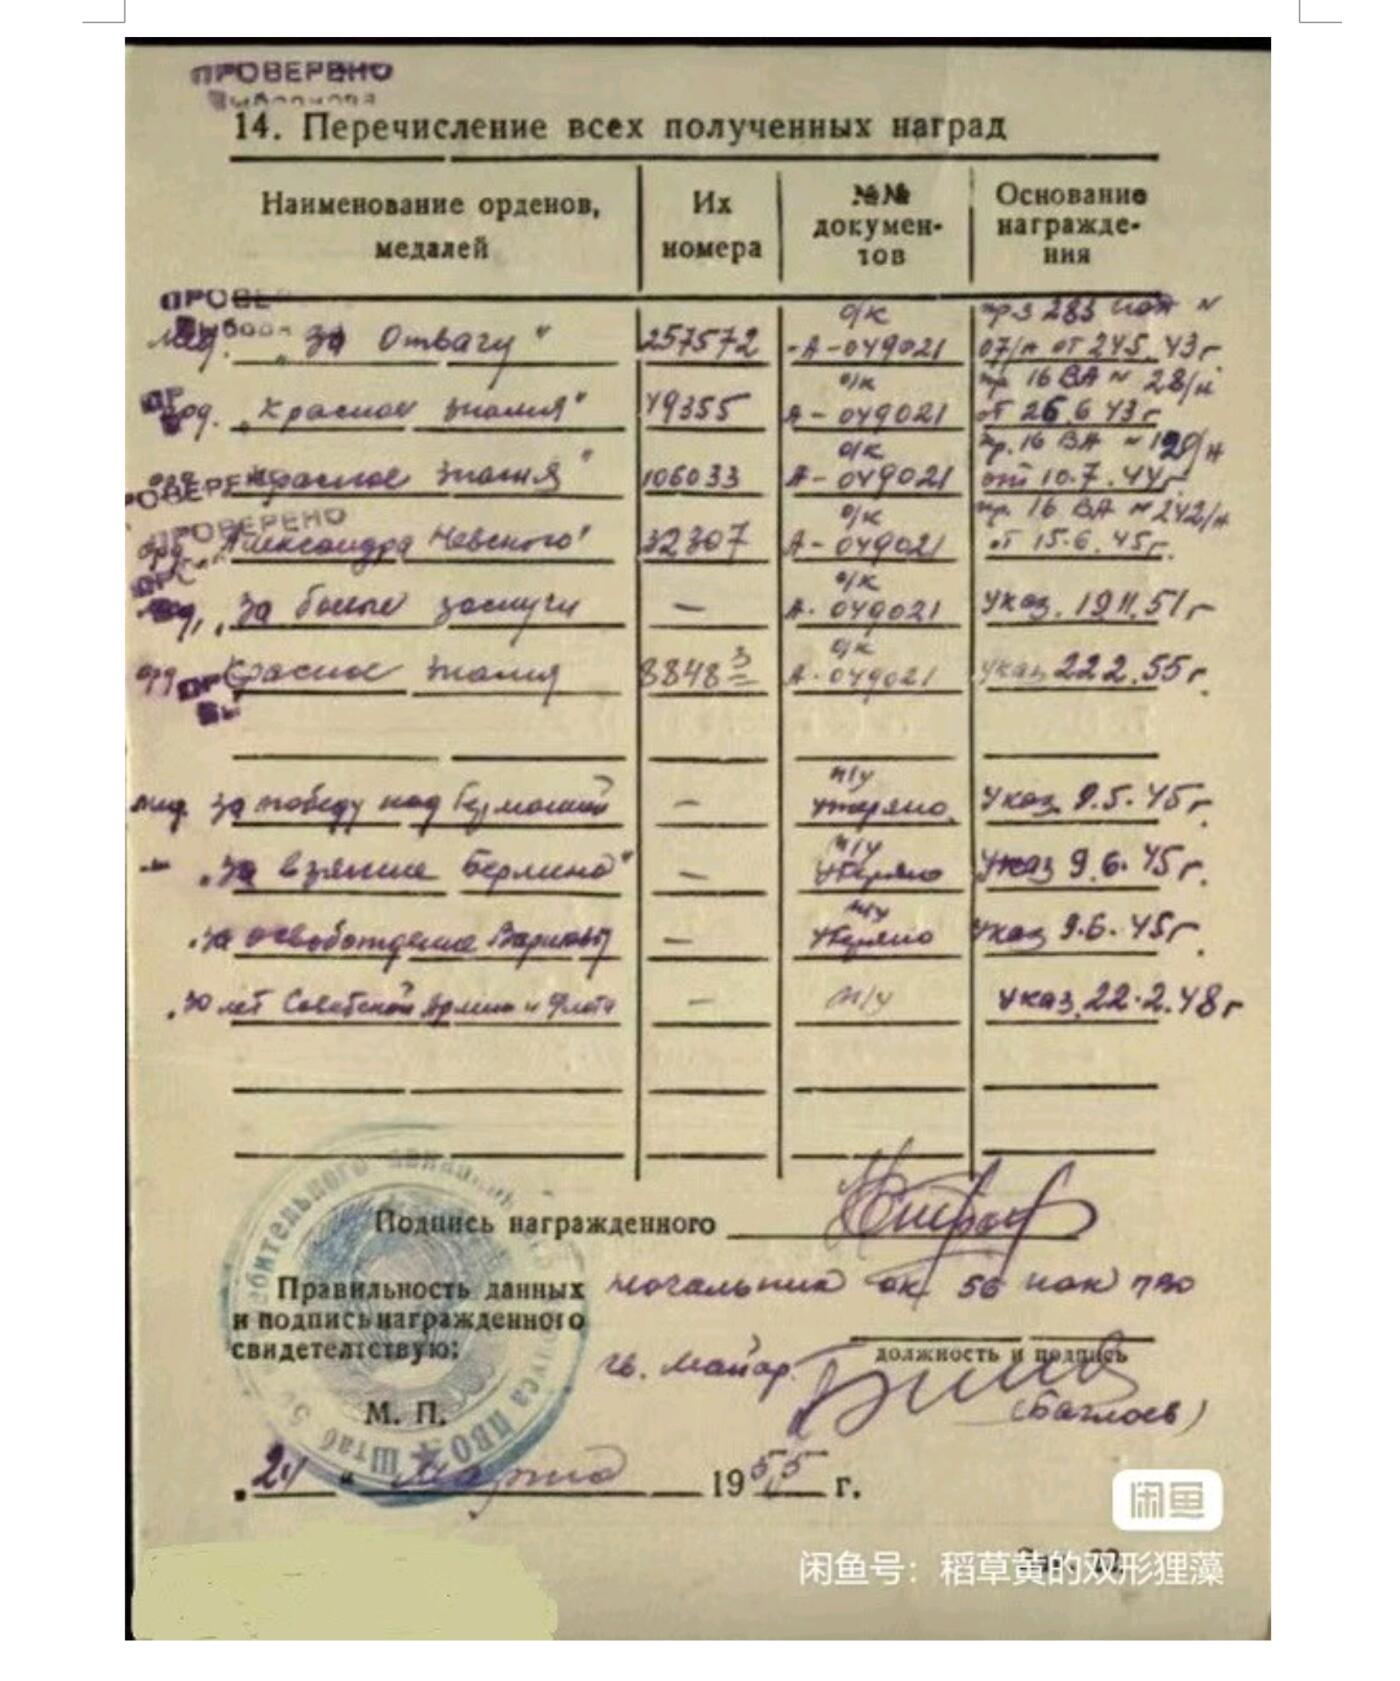 ПРОВЕРЕНО
14. Перечисление всех полученных наград
Наименование орденов, медалей
Их номера
№№ документов
Основание награждения
ПРОВЕ
мед. „за Отвагу“ 257572 о/к А-049021 пр. 283 иад № 07/н от 24.5.43г.
орд. „Красное знамя“ 49355 о/к А-049021 пр. 16 ВА № 28/н от 26.6.43г.
Красное знамя“ 106033 о/к А-049021 пр. 16 ВА № 129/н от 10.7.44г.
ПРОВЕРЕНО
орд. Александра Невского“ 32307 о/к А-049021 пр. 16 ВА № 242/н от 15.6.45г.
мед. „За боевые заслуги — о/к А-049021 Указ. 19.11.51г
орд. Красное знамя 88483 о/к А-049021 указ 22.2.55г.
мед. за победу над Германией — п/у утеряно. Указ 9.5.45г.
„За взятие Берлина“ — п/у утеряно Указ 9.6.45г.
„за освобождение Варшавы — п/у утеряно указ 9.6.45г.
„30 лет Советской Армии и Флота — п/у указ 22.2.48г
Подпись награжденного
Правильность данных и подпись награжденного свидетелствую:
начальник ок 56 иак пво
должность и подпись
гв. майор
(Баглаев)
М. П.
Штаб 56 корпуса ПВО
„24“ марта 1955 г.
闲鱼
闲鱼号：稻草黄的双形狸藻